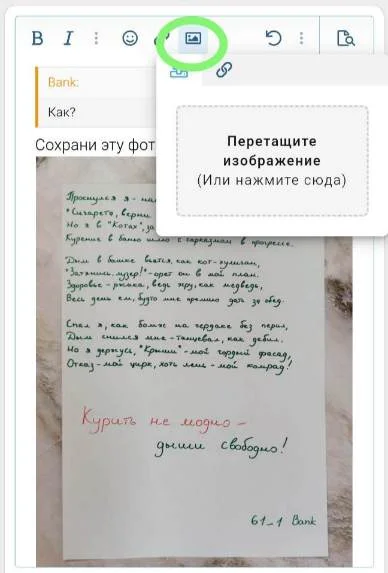 B I
Bank:
Как?
Сохрани эту фот
Перетащите
изображение
(Или нажмите сюда)
Проснулся я -
"Сигарета, верни
Но я в "Котах", за
Курение в баню шлю с сарказмом в прогрессе.
Дым в башке вьётся, как кот-хулиган,
"Затянись, лузер!" - орёт он в мой план.
Здоровье - ржака, ведь жру, как медведь,
Весь день ем, будто мне премию дать за обед.
Спал я, как бомж на чердаке без перил,
Дым снился мне - танцевал, как дебил.
Но я держусь, "Крыши" - мой гордый фасад,
Отказ - мой цирк, хоть лень - мой комрад!
Курить не модно -
дыши свободно!
61_1 Bank